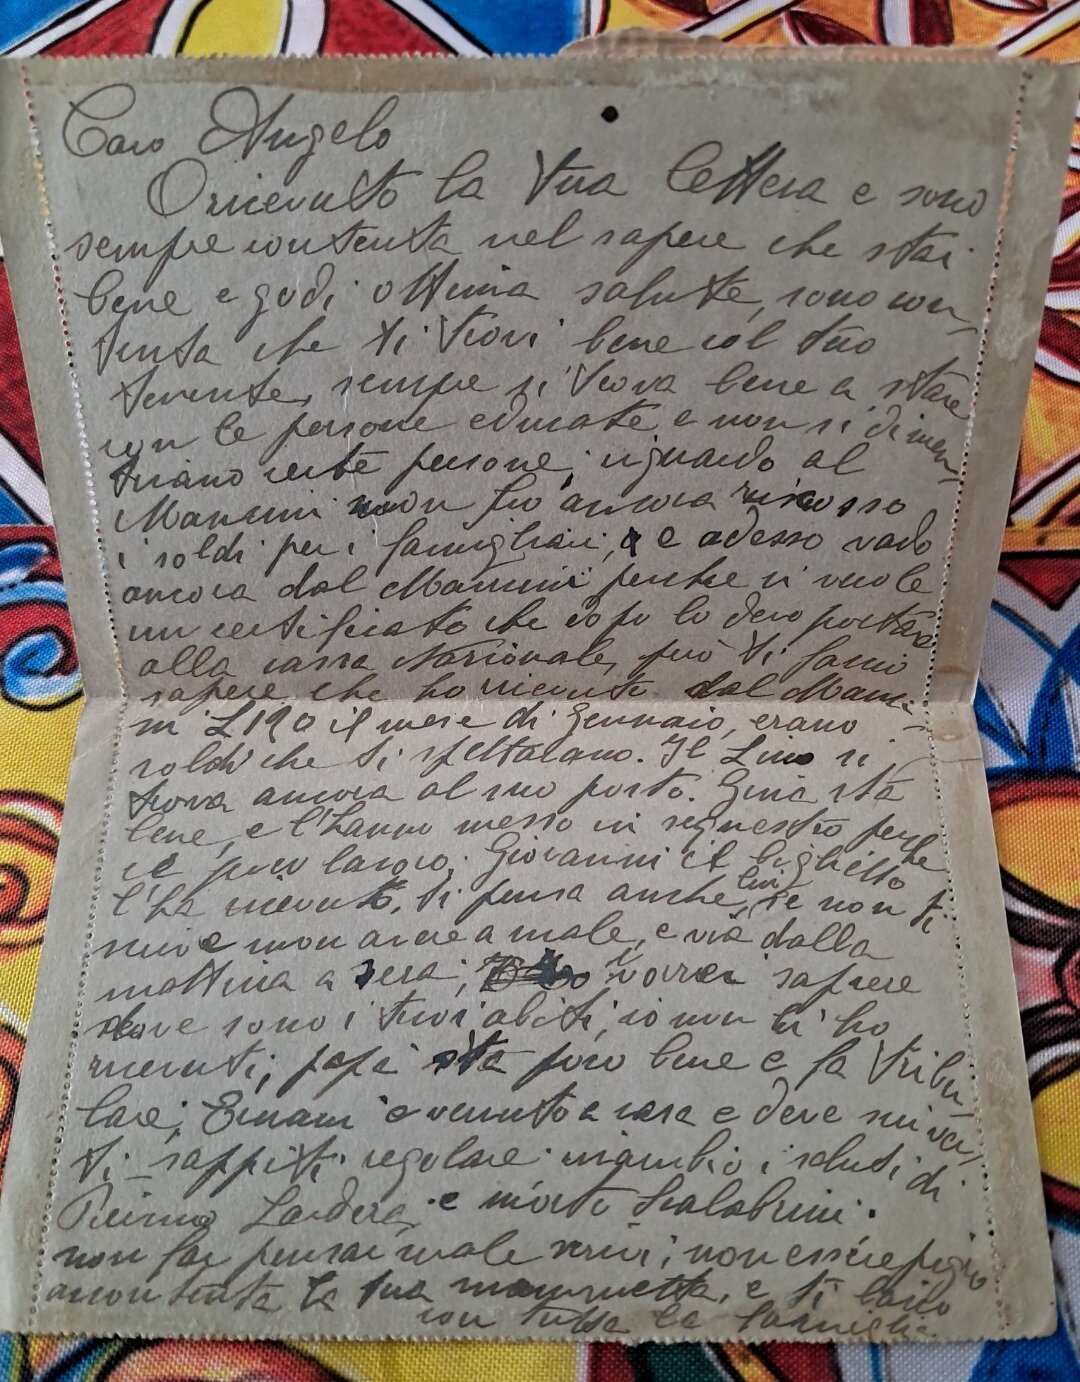 Caro Angelo
O ricevuto la tua lettera e sono
sempre contenta nel sapere che stai
bene e godi ottima salute, sono con-
tenta che ti trovi bene col tuo
tenente, sempre si trova bene a stare
con le persone educate e non si dimen-
ticano certe persone; riguardo al
Mancini non ho ancora riscosso
i soldi per i famigliari, e adesso vado
ancora dal Mancini perche ci vuole
un certificato che dopo lo devo portare
alla cassa Nazionale, però ti facio
sapere che ho ricevuto dal Manci-
ni L 190 il mese di Gennaio, erano
soldi che ti spettavano. Il Lino si
trova ancora al suo posto. Gina sta
bene, e l'hanno messo in sequestro perche
cè poco lavoro. Giovanni il biglietto
l'ha ricevuto, ti pensa anche lui, se non ti
scrive non avere a male, e via dalla
mattina a sera; vorrei sapere
dove sono i tuoi abiti, io non li ho
ricevuti; papà sta poco bene e fa tribu-
lare; Ernani e venuto a casa e deve scriver-
ti sappiti regolare. incambio i saluti di
Primo Lardera, e morto Scalabrini.
non far pensar male scrivi; non essere pigro
acontenta la tua mammetta, e ti bacio
con tutta la famiglia.